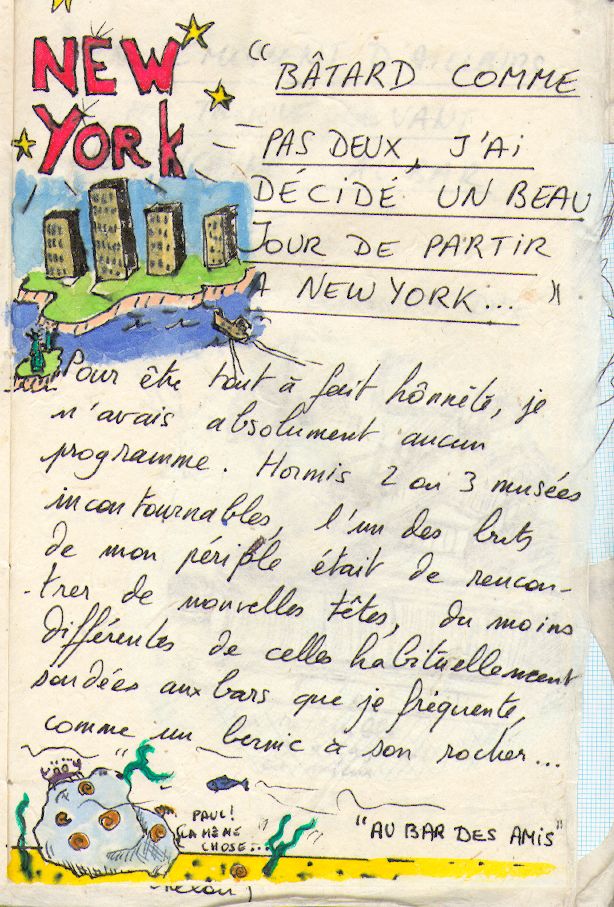 NEW
YORK
" BÂTARD COMME
PAS DEUX, J'Ai
DÉCIDÉ UN BEAU
JOUR DE PARTIR
A NEW YORK... "
Pour être tout à fait hônnête, je
n'avais absolument aucun
programme. Hormis 2 ou 3 musées
incontournables, l'un des buts
de mon périple était de rencon-
-trer de nouvelles têtes, du moins
différentes de celles habituellement
soudées aux bars que je fréquente,
comme un bernic à son rocher...
PAUL!
LA MÊME
CHOSE...
"AU BAR DES AMIS"